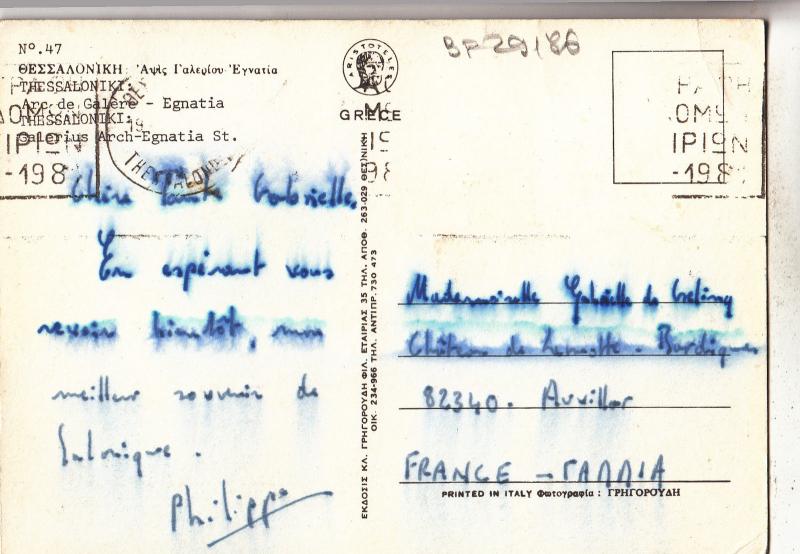 Nº.47
ΘΕΣΣΑΛΟΝΙΚΗ: Ἀψὶς Γαλερίου Ἐγνατία
THESSALONIKI:
Arc de Galère - Egnatia
THESSALONIKI:
Galerius Arch-Egnatia St.
Chère tante Gabrielle,
En espérant vous
revoir bientôt, mon
meilleur souvenir de
Salonique.
Philippe
ARISTOTELES
GRECE
ΕΚΔΟΣΙΣ ΚΛ. ΓΡΗΓΟΡΟΥΔΗ ΦΙΛ. ΕΤΑΙΡΙΑΣ 35 ΤΗΛ. ΑΠΟΘ. 263-029 ΘΕΣ)ΝΙΚΗ
ΟΙΚ. 234-966 ΤΗΛ. ΑΝΤΙΠΡ. 730 473
BF29186
ΟΜΥ
ΙΡΙΩΝ
-198
Mademoiselle Gabrielle de
Château de Lamothe - Bardigues
82340. Auvillar
FRANCE - ΓΑΛΛΙΑ
PRINTED IN ITALY Φωτογραφία : ΓΡΗΓΟΡΟΥΔΗ